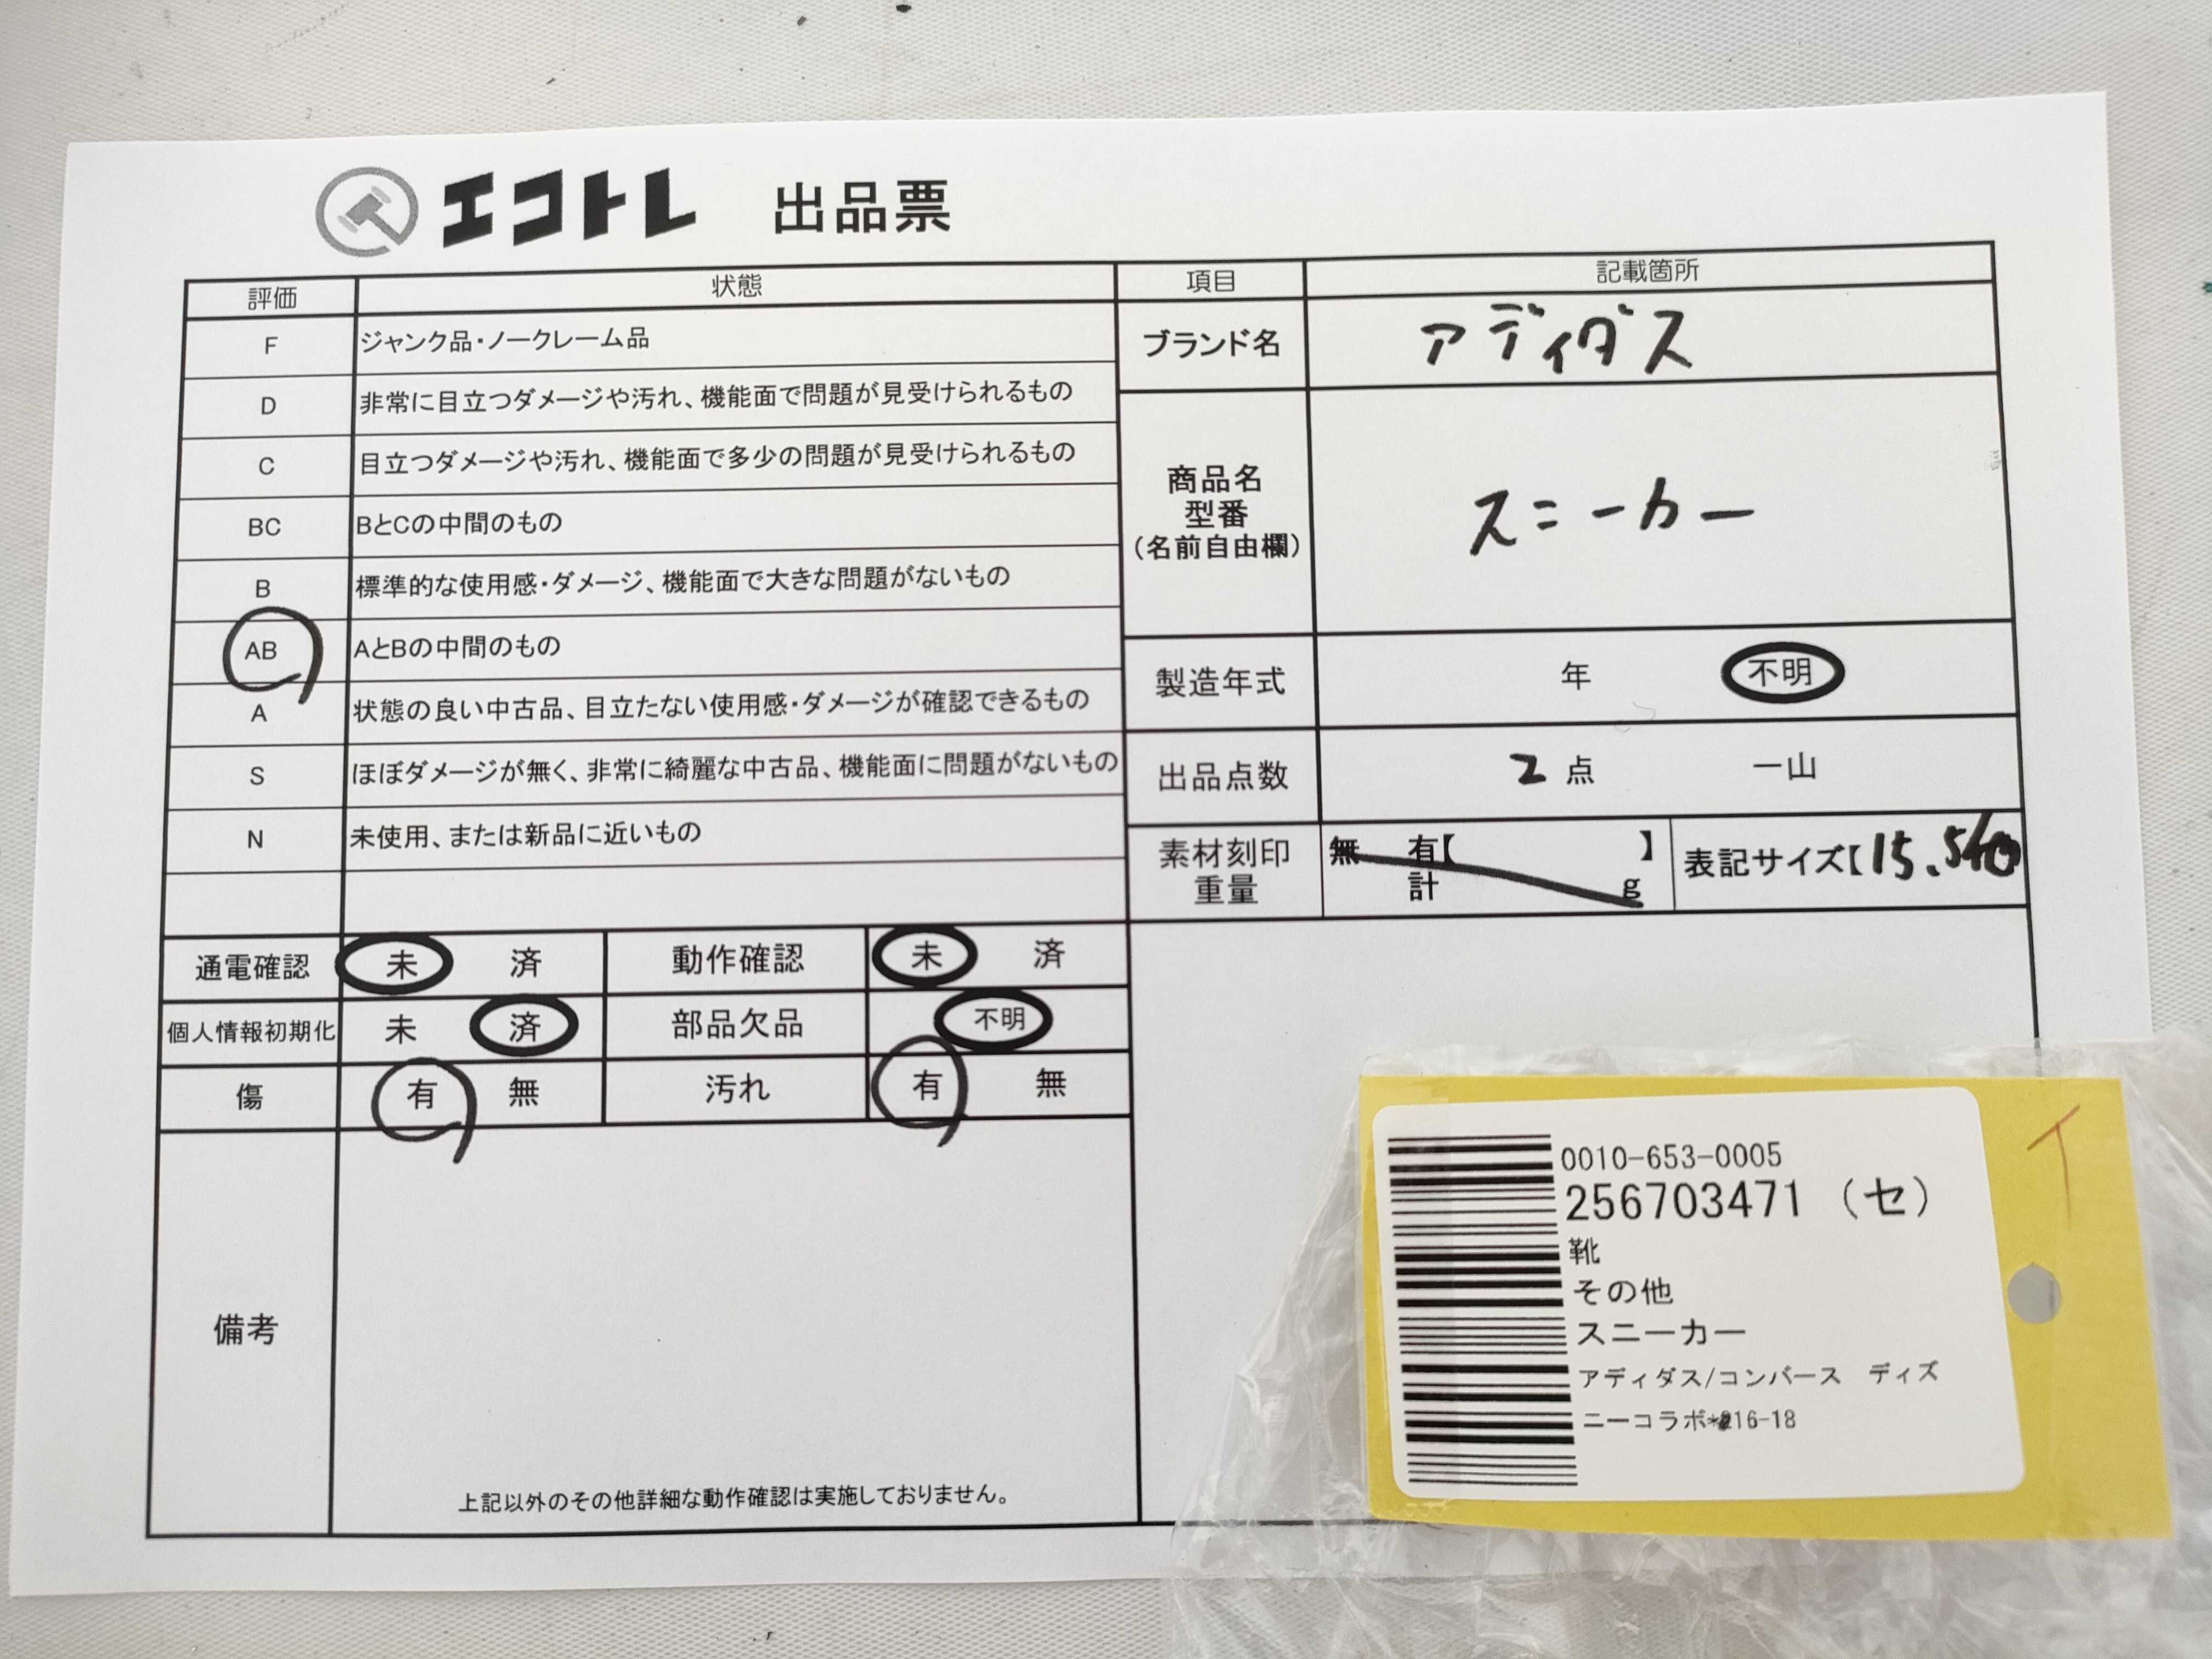 エコトレ 出品票
評価 状態 項目 記載箇所
F ジャンク品・ノークレーム品
D 非常に目立つダメージや汚れ、機能面で問題が見受けられるもの
C 目立つダメージや汚れ、機能面で多少の問題が見受けられるもの
BC BとCの中間のもの
B 標準的な使用感・ダメージ、機能面で大きな問題がないもの
AB AとBの中間のもの
A 状態の良い中古品、目立たない使用感・ダメージが確認できるもの
S ほぼダメージが無く、非常に綺麗な中古品、機能面に問題がないもの
N 未使用、または新品に近いもの
ブランド名 アディダス
商品名
型番
(名前自由欄)
スニーカー
製造年式 年 不明
出品点数 2 点 一山
素材刻印
重量
無 有【 】
計 g
表記サイズ【15.5
通電確認 未 済 動作確認 未 済
個人情報初期化 未 済 部品欠品 不明
傷 有 無 汚れ 有 無
備考
上記以外のその他詳細な動作確認は実施しておりません。
イ
0010-653-0005
256703471 (セ)
靴
その他
スニーカー
アディダス/コンバース ディズ
ニーコラボ 16-18